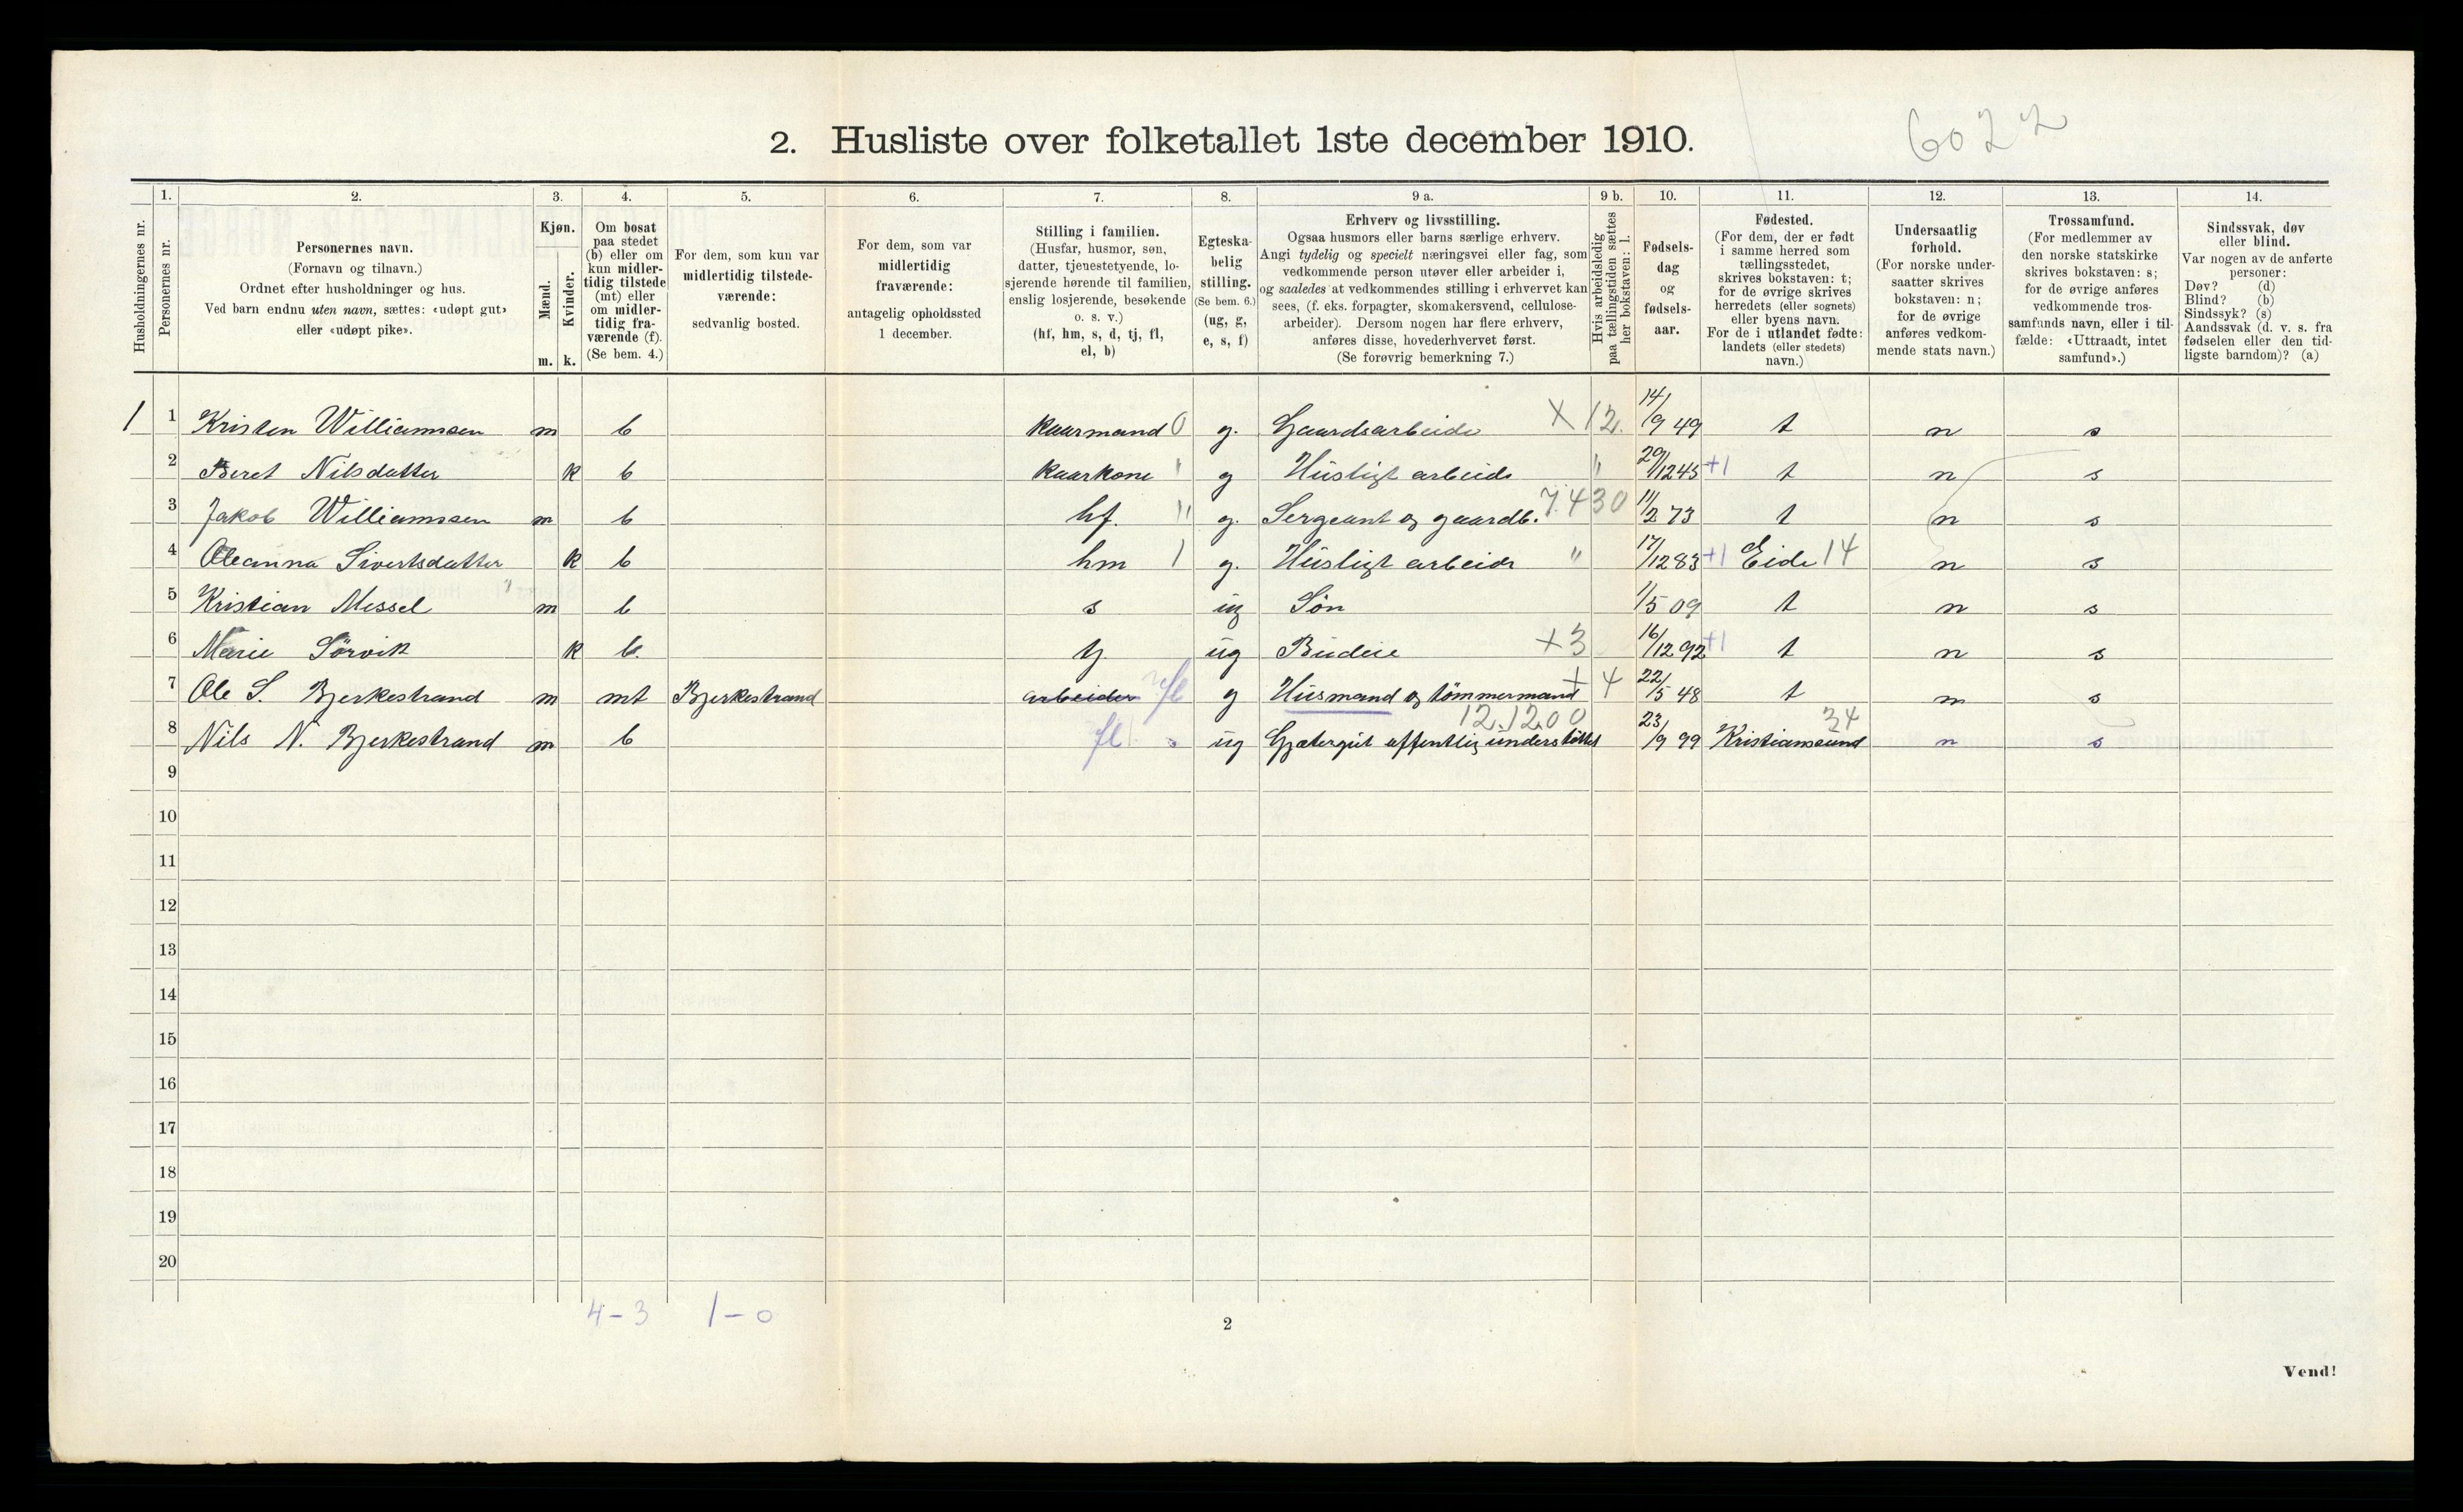 2. Husliste over folketallet 1ste december 1910.
6022
Husholdningernes nr.
1.
Personernes nr.
2.
Personernes navn.
(Fornavn og tilnavn.)
Ordnet efter husholdninger og hus.
Ved barn endnu uten navn, sættes: «udøpt gut»
eller «udøpt pike».
3.
Kjøn.
Mænd.
Kvinder.
m. k.
4.
Om bosat
paa stedet
(b) eller om
kun midler-
tidig tilstede
(mt) eller
om midler-
tidig fra-
værende (f).
(Se bem. 4.)
5.
For dem, som kun var
midlertidig tilstede-
værende:
sedvanlig bosted.
6.
For dem, som var
midlertidig
fraværende:
antagelig opholdssted
1 december.
7.
Stilling i familien.
(Husfar, husmor, søn,
datter, tjenestetyende, lo-
sjerende hørende til familien,
enslig losjerende, besøkende
o. s. v.)
(hf, hm, s, d, tj, fl,
el, b)
8.
Egteska-
belig
stilling.
(Se bem. 6.)
(ug, g,
e, s, f)
9 a.
Erhverv og livsstilling.
Ogsaa husmors eller barns særlige erhverv.
Angi tydelig og specielt næringsvei eller fag, som
vedkommende person utøver eller arbeider i,
og saaledes at vedkommendes stilling i erhvervet kan
sees, (f. eks. forpagter, skomakersvend, cellulose-
arbeider). Dersom nogen har flere erhverv,
anføres disse, hovederhvervet først.
(Se forøvrig bemerkning 7.)
9 b.
Hvis arbeidsledig
paa tællingstiden sættes
her bokstaven: l.
10.
Fødsels-
dag
og
fødsels-
aar.
11.
Fødested.
(For dem, der er født
i samme herred som
tællingsstedet,
skrives bokstaven: t;
for de øvrige skrives
herredets (eller sognets)
eller byens navn.
For de i utlandet fødte:
landets (eller stedets)
navn.)
12.
Undersaatlig
forhold.
(For norske under-
saatter skrives
bokstaven: n;
for de øvrige
anføres vedkom-
mende stats navn.)
13.
Trossamfund.
(For medlemmer av
den norske statskirke
skrives bokstaven: s;
for de øvrige anføres
vedkommende tros-
samfunds navn, eller i til-
fælde: «Uttraadt, intet
samfund».)
14.
Sindssvak, døv
eller blind.
Var nogen av de anførte
personer:
Døv? (d)
Blind? (b)
Sindssyk? (s)
Aandssvak (d. v. s. fra
fødselen eller den tid-
ligste barndom)? (a)
1 1 Kristen Williamsen m b Kaarmand 0 g. Gaardsarbeide X 12. 14/9 49 t n s
2 Beret Nilsdatter k b Kaarkone " g Husligt arbeide " 29/12 45 +1 t n s
3 Jakob Williamsen m b hf. " g. Sergeant og gaardb. 7.430 11/2 73 t n s
4 Oleanna Sivertsdatter k b hm 1 g. Husligt arbeide " 17/12 83 +1 Eide 14 n s
5 Kristian Messel " m b s ug Søn 1/5 09 t n s
6 Marie Sørvik k b. tj. ug Budeie +3 16/12 92 +1 t n s
7 Ole S. Bjerkestrand m mt Bjerkestrand arbeider fl g Husmand og tømmermand + 4 22/5 48 t n s
8 Nils N. Bjerkestrand m b fl s ug Gjætergut offentlig understøttet 12.1200 23/9 99 Kristiansund 34 n s
9
10
11
12
13
14
15
16
17
18
19
20
4-3 1-0
2
Vend!